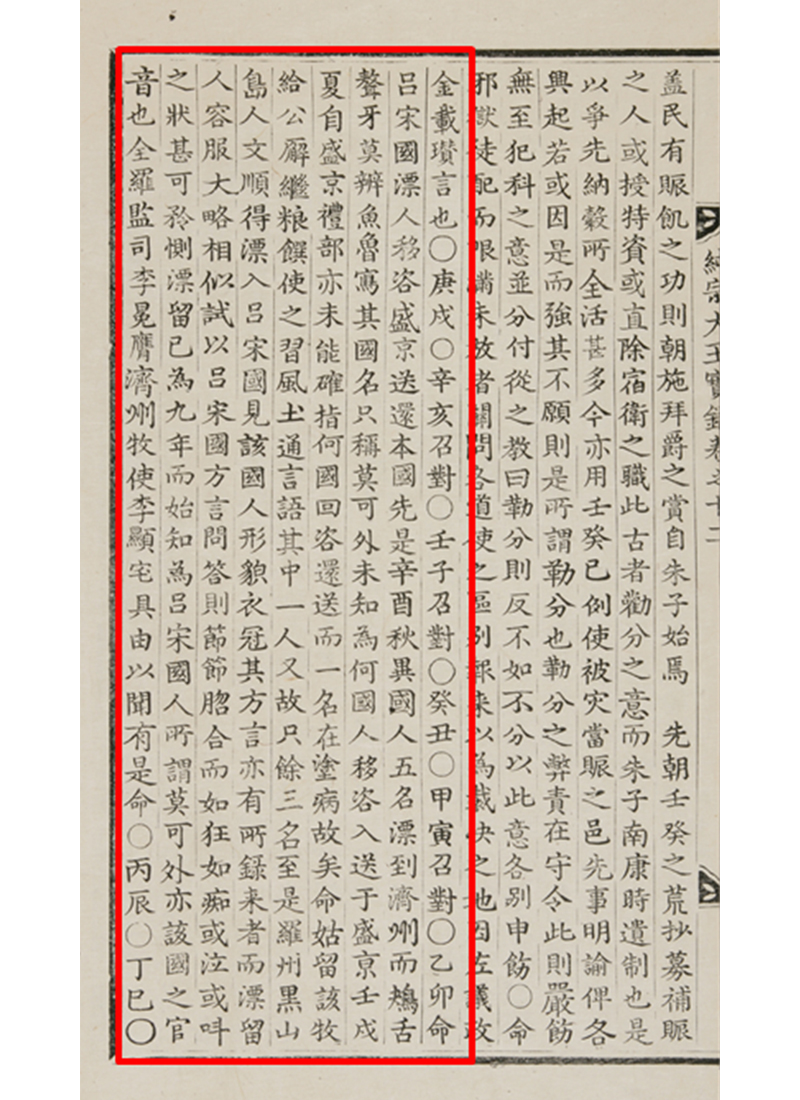 盖民有賑飢之功則朝施拜爵之賞自朱子始焉　先朝壬癸之荒抄募補賑
之人或授特資或直除宿衛之職此古者勸分之意而朱子南康時遺制也是
以爭先納穀所全活甚多今亦用壬癸已例使被灾當賑之邑先事明諭俾各
興起若或因是而強其不願則是所謂勒分也勒分之弊責在守令此則嚴飭
無至犯科之意並分付從之敎曰勒分則反不如不分以此意各別申飭○命
邪獄徒配而限滿未放者關問各道使之區別報来以為裁决之地因左議政
金載瓚言也○庚戌○辛亥召對○壬子召對○癸丑○甲寅召對○乙卯命
呂宋國漂人移咨盛京送還本國先是辛酉秋異國人五名漂到濟州而鴂舌
聱牙莫辨魚魯寫其國名只稱莫可外未知為何國人移咨入送于盛京壬戌
夏自盛京禮部亦未能確指何國回咨還送而一名在塗病故矣命姑留該牧
給公廨繼粮饌使之習風土通言語其中一人又故只餘三名至是羅州黑山
島人文順得漂入呂宋國見該國人形貌衣冠其方言亦有所錄来者而漂留
人容服大略相似試以呂宋國方言問答則節節脗合而如狂如痴或泣或呌
之狀甚可矜惻漂留已為九年而始知為呂宋國人所謂莫可外亦該國之官
音也全羅監司李冕膺濟州牧使李顯宅具由以聞有是命○丙辰○丁巳○
純宗大王實錄卷之十二